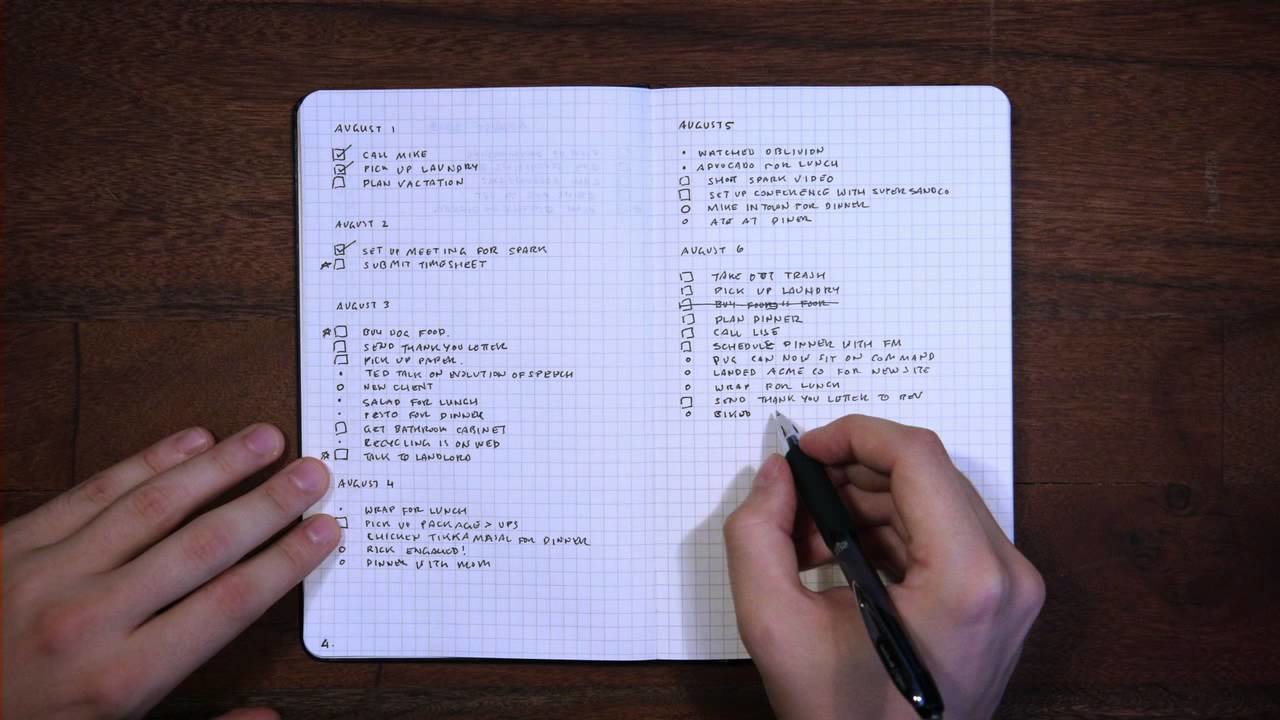 AUGUST 1
CALL MIKE
PICK UP LAUNDRY
PLAN VACTATION
AUGUST 2
SET UP MEETING FOR SPARK
SUBMIT TIMESHEET
AUGUST 3
BUY DOG FOOD.
SEND THANK YOU LETTER
PICK UP PAPER.
TED TALK ON EVOLUTION OF SPEECH
NEW CLIENT
SALAD FOR LUNCH
PESTO FOR DINNER
GET BATHROOM CABINET
RECYCLING IS ON WED
TALK TO LANDLORD
AUGUST 4
WRAP FOR LUNCH
PICK UP PACKAGE > UPS
CHICKEN TIKKA MASAL FOR DINNER
RICK ENGAGED!
DINNER WITH MOM
4.
AUGUST 5
WATCHED OBLIVION
ADVOCADO FOR LUNCH
SHOOT SPARK VIDEO
SET UP CONFERENCE WITH SUPERSANDCO
MIKE IN TOWN FOR DINNER
ATE AT DINER
AUGUST 6
TAKE OUT TRASH
PICK UP LAUNDRY
BUY FOOD
PLAN DINNER
CALL LISE
SCHEDULE DINNER WITH FM
PUG CAN NOW SIT ON COMMAND
LANDED ACME CO FOR NEW SITE
WRAP FOR LUNCH
SEND THANK YOU LETTER TO BEN